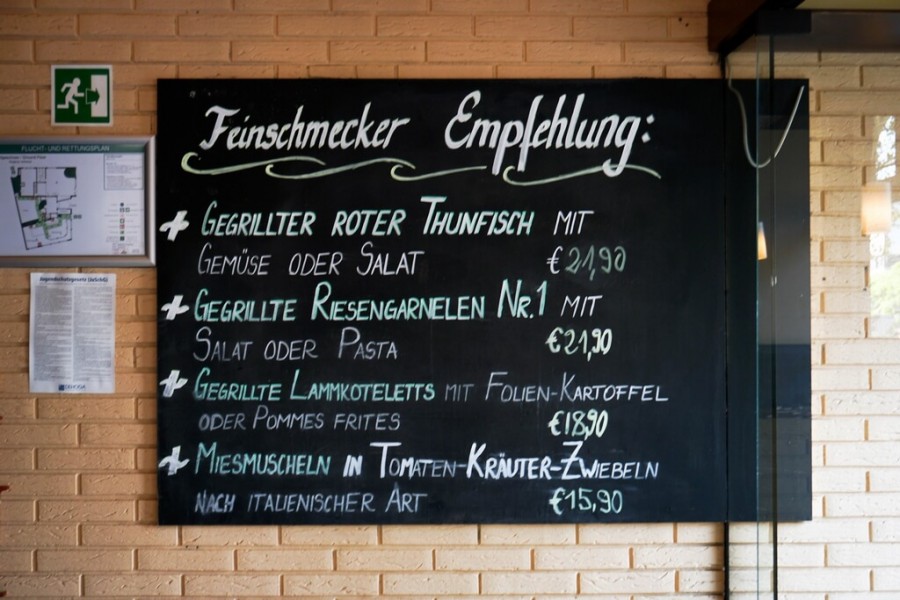 FLUCHT- UND RETTUNGSPLAN
Jugendschutzgesetz (JuSchG)
Feinschmecker Empfehlung:
+ GEGRILLTER ROTER THUNFISCH MIT
GEMÜSE ODER SALAT €21,90
+ GEGRILLTE RIESENGARNELEN NR.1 MIT
SALAT ODER PASTA €21,90
+ GEGRILLTE LAMMKOTELETTS MIT FOLIEN-KARTOFFEL
ODER POMMES FRITES €18,90
+ MIESMUSCHELN IN TOMATEN-KRÄUTER-ZWIEBELN
NACH ITALIENISCHER ART €15,90